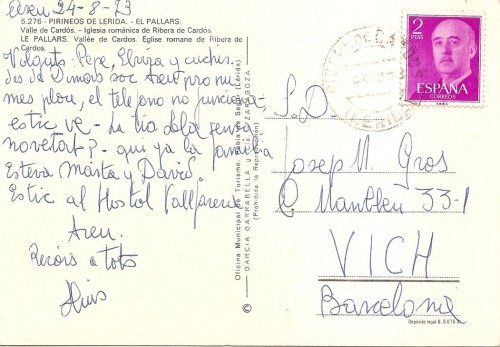 Areu 24-8-73
5.276 - PIRINEOS DE LERIDA. - EL PALLARS.
Valle de Cardós. - Iglesia románica de Ribera de Cardós.
LE PALLARS. Vallée de Cardos. Eglise romane de Ribera de Cardos.
Volguts: Pepe, Elvira y
des de Dimars soc Areu pro no
mes plou, el telefono no funciona
estic - La tia Lola sense
novetat? - qui ya la familia
Esteva Marta y David.
Estic al Hostol Vallferrera
Areu.
Recors a tots
Lluis
Oficina Municipal de Turismo. Pobla de Segur (Lérida)
GARCIA GARRABELLA y Cía. - ZARAGOZA
(Prohibida la Reproducción)
©
2
PTAS
ESPAÑA
CORREOS
S.D.
Josep M. Gros
C Manlleu 33-1
VICH
Barcelona
Depósito legal B. 9.676